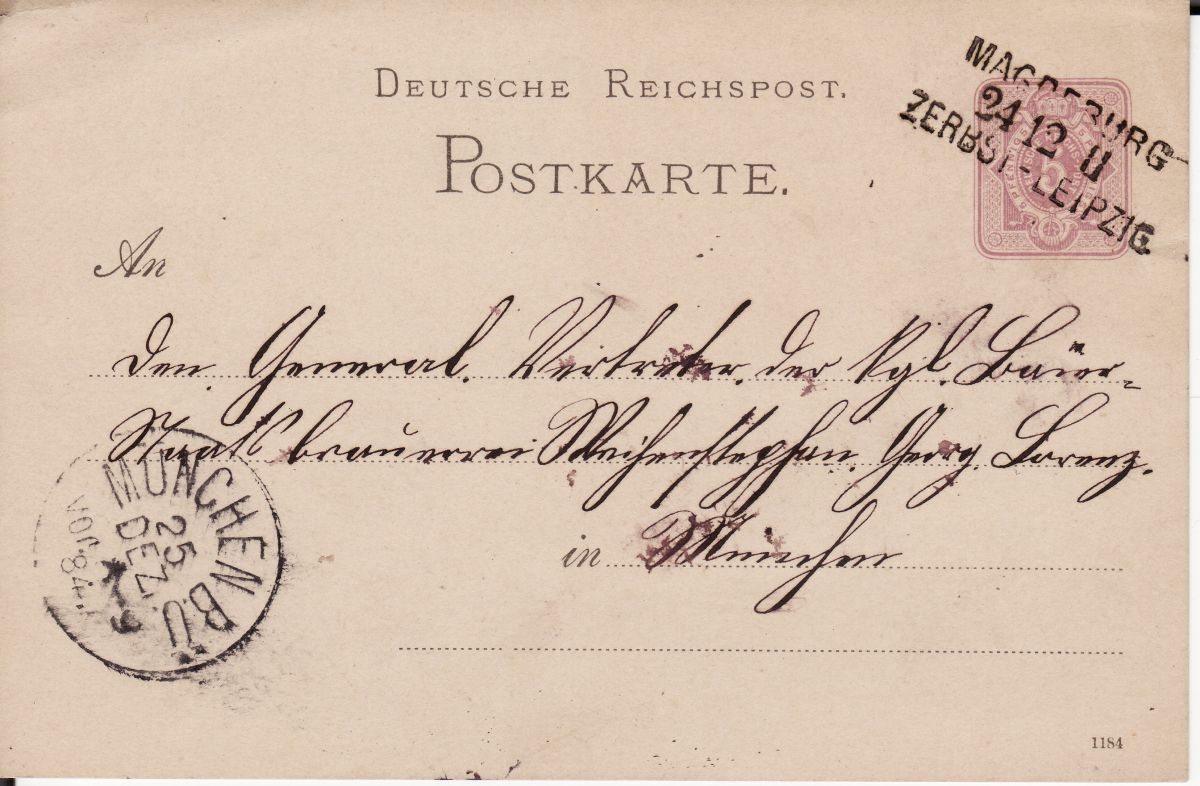 DEUTSCHE REICHSPOST.
POSTKARTE.
MAGDEBURG
24 12 II
ZERBST-LEIPZIG.
An
Den General. Vertreter. der Kgl. Baier-
Staatsbrauerei Weihenstephan. Georg. Lorenz.
in München
MÜNCHEN B.Ü.
25
DEZ.
VOR 84.
1184